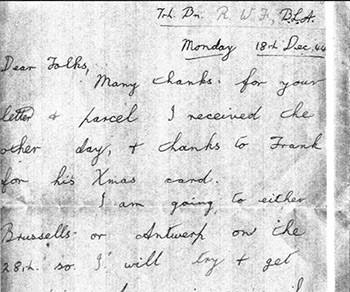 Trh. Bn. R. W. F., B.L.A.
Monday 18th Dec, 44
Dear Folks,
Many thanks. for your
letter & parcel I received the
other day, & thanks to Frank
for his Xmas card.
I am going to either
Brussells or Antwerp on the
28th. so I will try & get